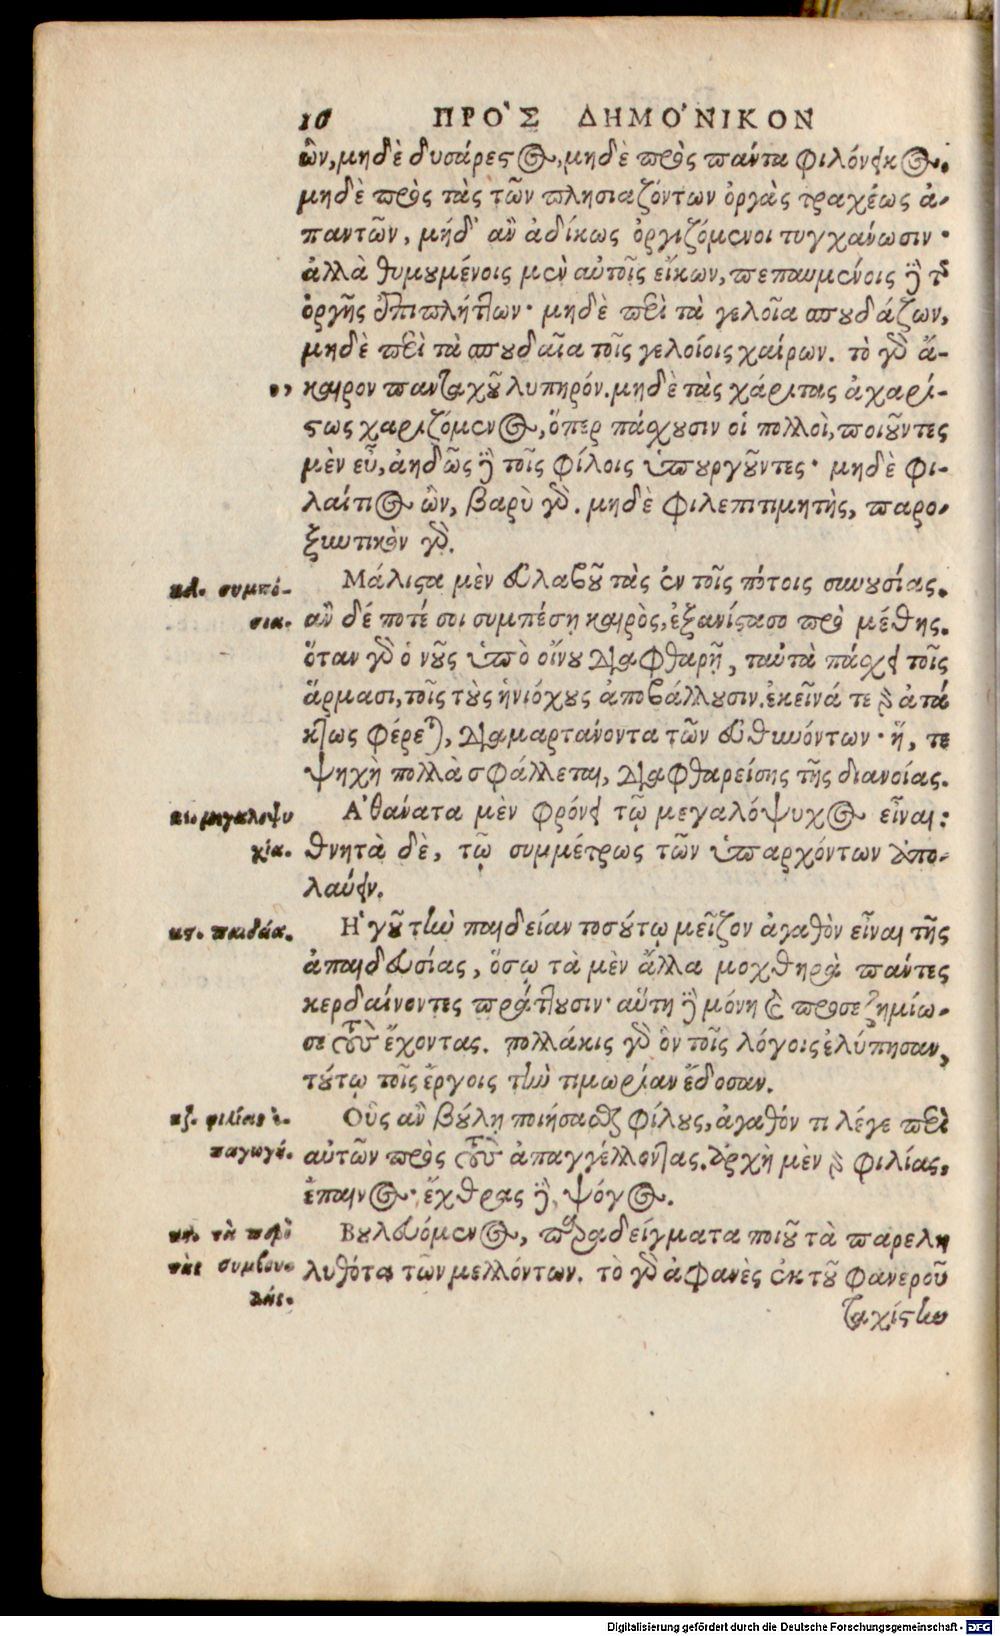 10 ΠΡΟ'Σ ΔΗΜΟ'ΝΙΚΟΝ
ὢν, μηδὲ δυσάρεςος, μηδὲ πρὸς πάντα φιλόνεικος.
μηδὲ πρὸς τὰς τῶν πλησιαζόντων ὀργὰς τραχέως ἀ-
παντῶν, μήδ' ἂν ἀδίκως ὀργιζόμενοι τυγχάνωσιν·
ἀλλὰ θυμουμένοις μὲν αὐτοῖς εἴκων, πεπαυμένοις δὲ τῆς
ὀργῆς ἐπιπλήττων· μηδὲ περὶ τὰ γελοῖα σπουδάζων,
μηδὲ περὶ τὰ σπουδαῖα τοῖς γελοίοις χαίρων. τὸ γὰρ ἄ-
,, καιρον πανταχοῦ λυπηρόν. μηδὲ τὰς χάριτας ἀχαρί-
ςως χαριζόμενος, ὅπερ πάσχουσιν οἱ πολλοὶ, ποιοῦντες
μὲν εὖ, ἀηδῶς δὲ τοῖς φίλοις ὑπουργοῦντες· μηδὲ φι-
λαίτιος ὢν, βαρὺ γὰρ. μηδὲ φιλεπιτιμητὴς, παρο-
ξυντικὸν γὰρ.
κδ. συμπό-
σια.
Μάλιςα μὲν εὐλαβοῦ τὰς ἐν τοῖς πότοις συνουσίας.
ἂν δέ ποτέ σοι συμπέσῃ καιρὸς, ἐξανίςασο πρὸ μέθης.
ὅταν γὰρ ὁ νοῦς ὑπὸ οἴνου διαφθαρῇ, ταὐτὰ πάσχει τοῖς
ἅρμασι, τοῖς τοὺς ἡνιόχους ἀποβάλλουσιν. ἐκεῖνά τε γὰρ ἀτά
κτως φέρεται, διαμαρτάνοντα τῶν εὐθυνόντων· ἥ, τε
ψηχὴ πολλὰ σφάλλεται, διαφθαρείσης τῆς διανοίας.
κε. μεγαλοψυ
χία.
Α'θάνατα μὲν φρόνει τῷ μεγαλόψυχος εἶναι:
θνητὰ δὲ, τῷ συμμέτρως τῶν ὑπαρχόντων ἀπο-
λαύειν.
κϛ. παιδεία.
Η'γοῦ τὴν παιδείαν τοσούτῳ μεῖζον ἀγαθὸν εἶναι τῆς
ἀπαιδευσίας, ὅσῳ τὰ μὲν ἄλλα μοχθηρὰ πάντες
κερδαίνοντες πράττουσιν· αὕτη δὲ μόνη καὶ προσεζημίω-
σε τοὺς ἔχοντας. πολλάκις γὰρ ὃν τοῖς λόγοις ἐλύπησαν,
τούτῳ τοῖς ἔργοις τὴν τιμωρίαν ἔδοσαν.
κζ. φιλίας ἐ-
παγωγή.
Οὓς ἂν βούλῃ ποιήσασθαι φίλους, ἀγαθόν τι λέγε περὶ
αὐτῶν πρὸς τοὺς ἀπαγγέλλοντας. ἀρχὴ μὲν γὰρ φιλίας,
ἔπαινος· ἔχθρας δὲ, ψόγος.
κη. τὰ περὶ
τὰς συμβου-
λάς.
Βουλευόμενος, παραδείγματα ποιοῦ τὰ παρελη
λυθότα τῶν μελλόντων. τὸ γὰρ ἀφανὲς ἐκ τοῦ φανεροῦ
ταχίςην
Digitalisierung gefördert durch die Deutsche Forschungsgemeinschaft - DFG